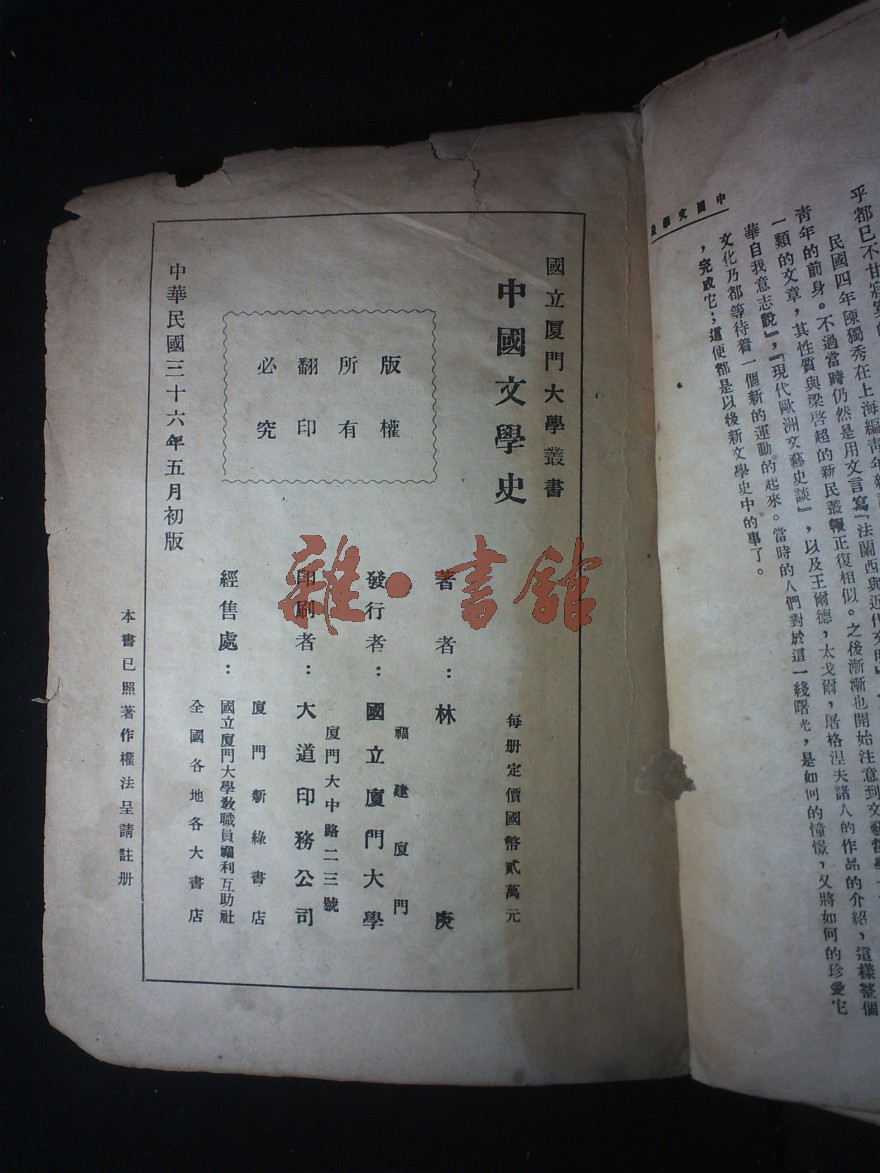 中國文學史
乎都已不甘寂寞的
民國四年陳獨秀在上海編青年雜
青年的前身。不過當時仍然是用文言寫『法蘭西與近代文明』，
一類的文章，其性質與梁啓超的新民叢報正復相似。之後漸漸也開始注意到文藝哲學
華自我意志說』，『現代歐洲文藝史談』，以及王爾德，太戈爾，屠格涅夫諸人的作品的介紹，這樣整個
文化乃都等待着一個新的運動的起來。當時的人們對於這一綫曙光，是如何的憧憬，又將如何的珍愛它
，完成它；這便都是以後新文學史中的事了。
國立厦門大學叢書
中國文學史
每册定價國幣貳萬元
版權
所有
翻印
必究
著者：林庚
福建厦門
發行者：國立厦門大學
厦門大中路二三號
印刷者：大道印務公司
厦門新綠書店
經售處：國立厦門大學教職員福利互助社
全國各地各大書店
中華民國三十六年五月初版
本書已照著作權法呈請註册
雜·書館